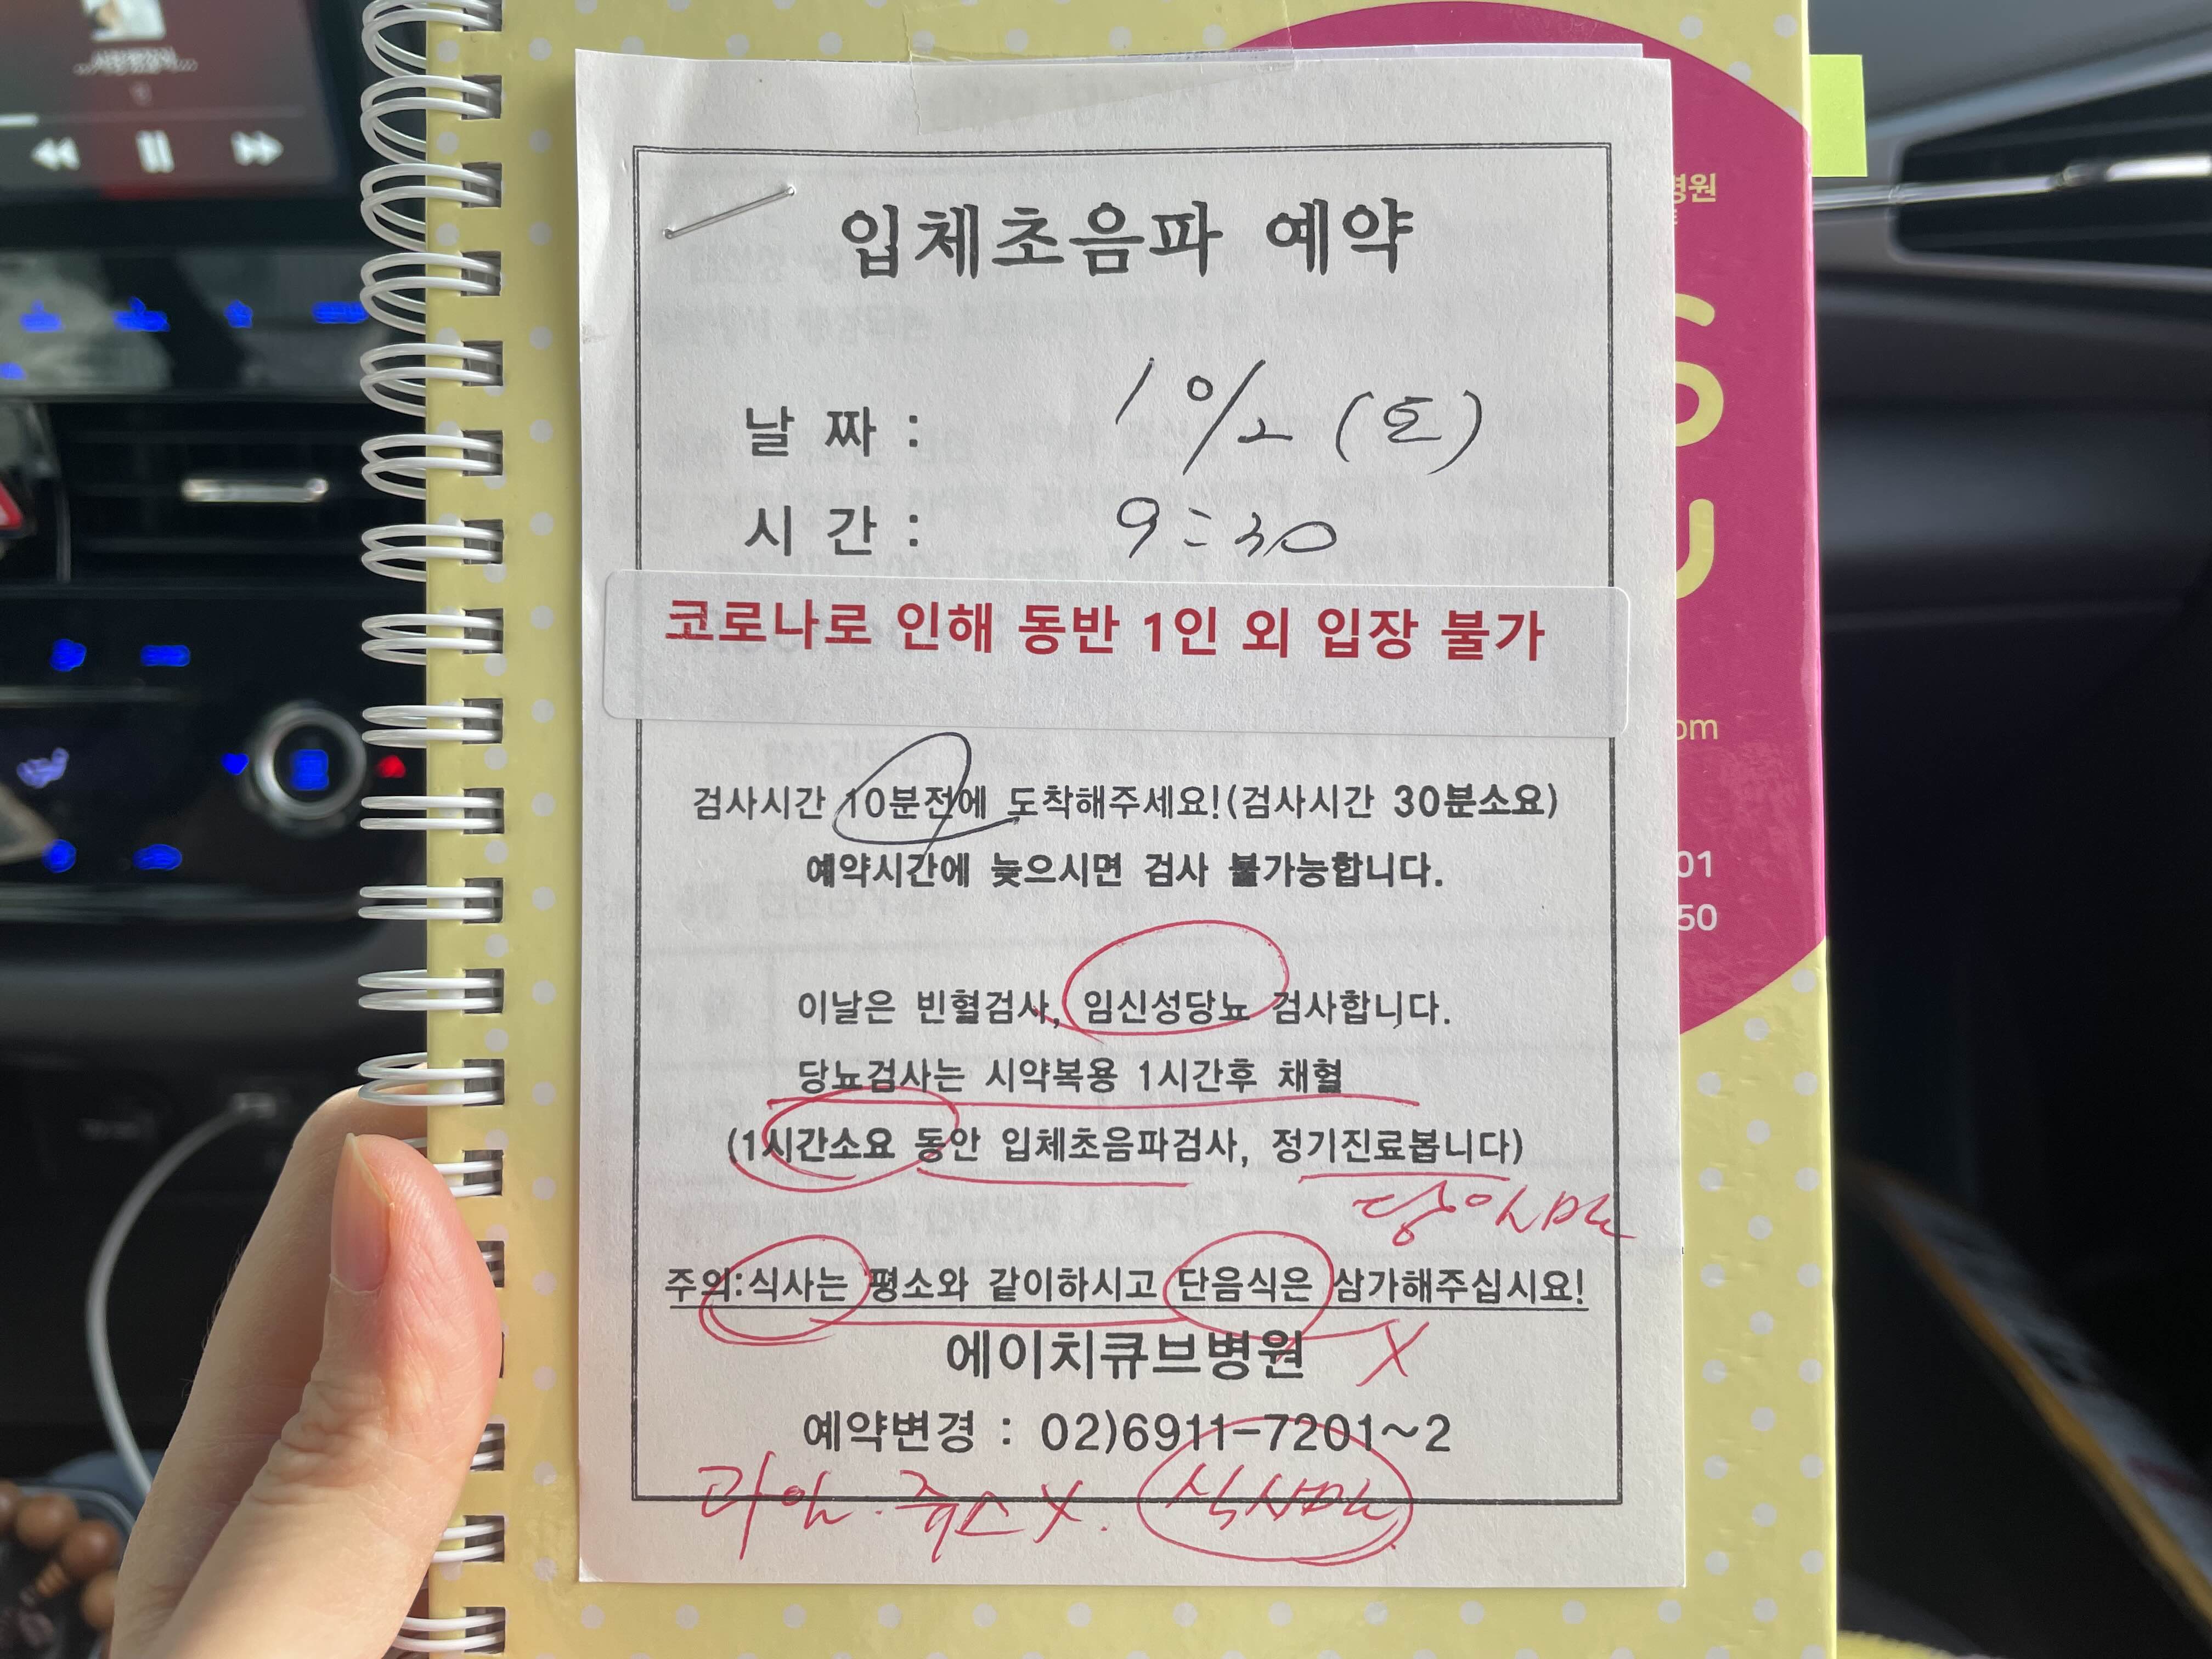 입체초음파 예약
날 짜 : 10/2 (토)
시 간 : 9:30
코로나로 인해 동반 1인 외 입장 불가
검사시간 10분전에 도착해주세요!(검사시간 30분소요)
예약시간에 늦으시면 검사 불가능합니다.
이날은 빈혈검사, 임신성당뇨 검사합니다.
당뇨검사는 시약복용 1시간후 채혈
(1시간소요 동안 입체초음파검사, 정기진료봅니다)
주의:식사는 평소와 같이하시고 단음식은 삼가해주십시요!
X
에이치큐브병원
예약변경 : 02)6911-7201~2
과일. 쥬스 X.
병원
S
U
om
01
50